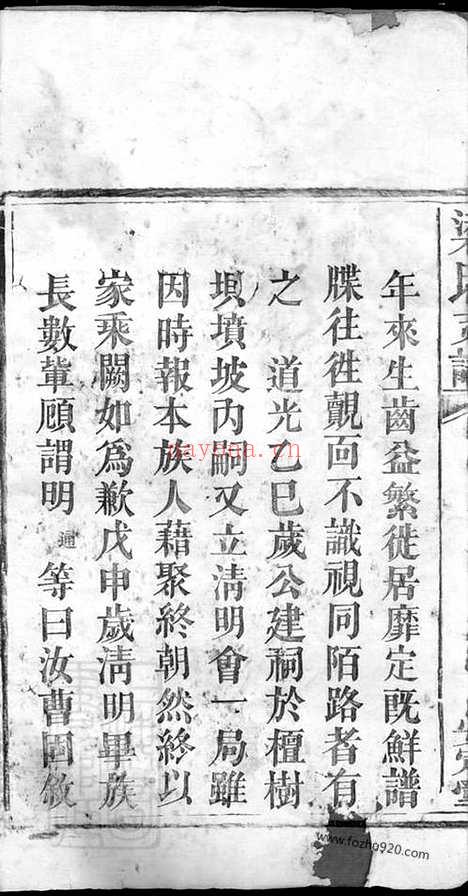 年來生齒益繁徙居靡定旣鮮譜
牒往往覿面不識視同陌路者有
之 道光乙巳歲公建祠於檀樹
垻墳坡內嗣又立淸明會一局雖
因時報本族人藉聚終朝然終以
家乘闕如爲歉戊申歲淸明畢族
長數輩顧謂明通等曰汝曹固敘
nayona.cn
www.fozhg920.com